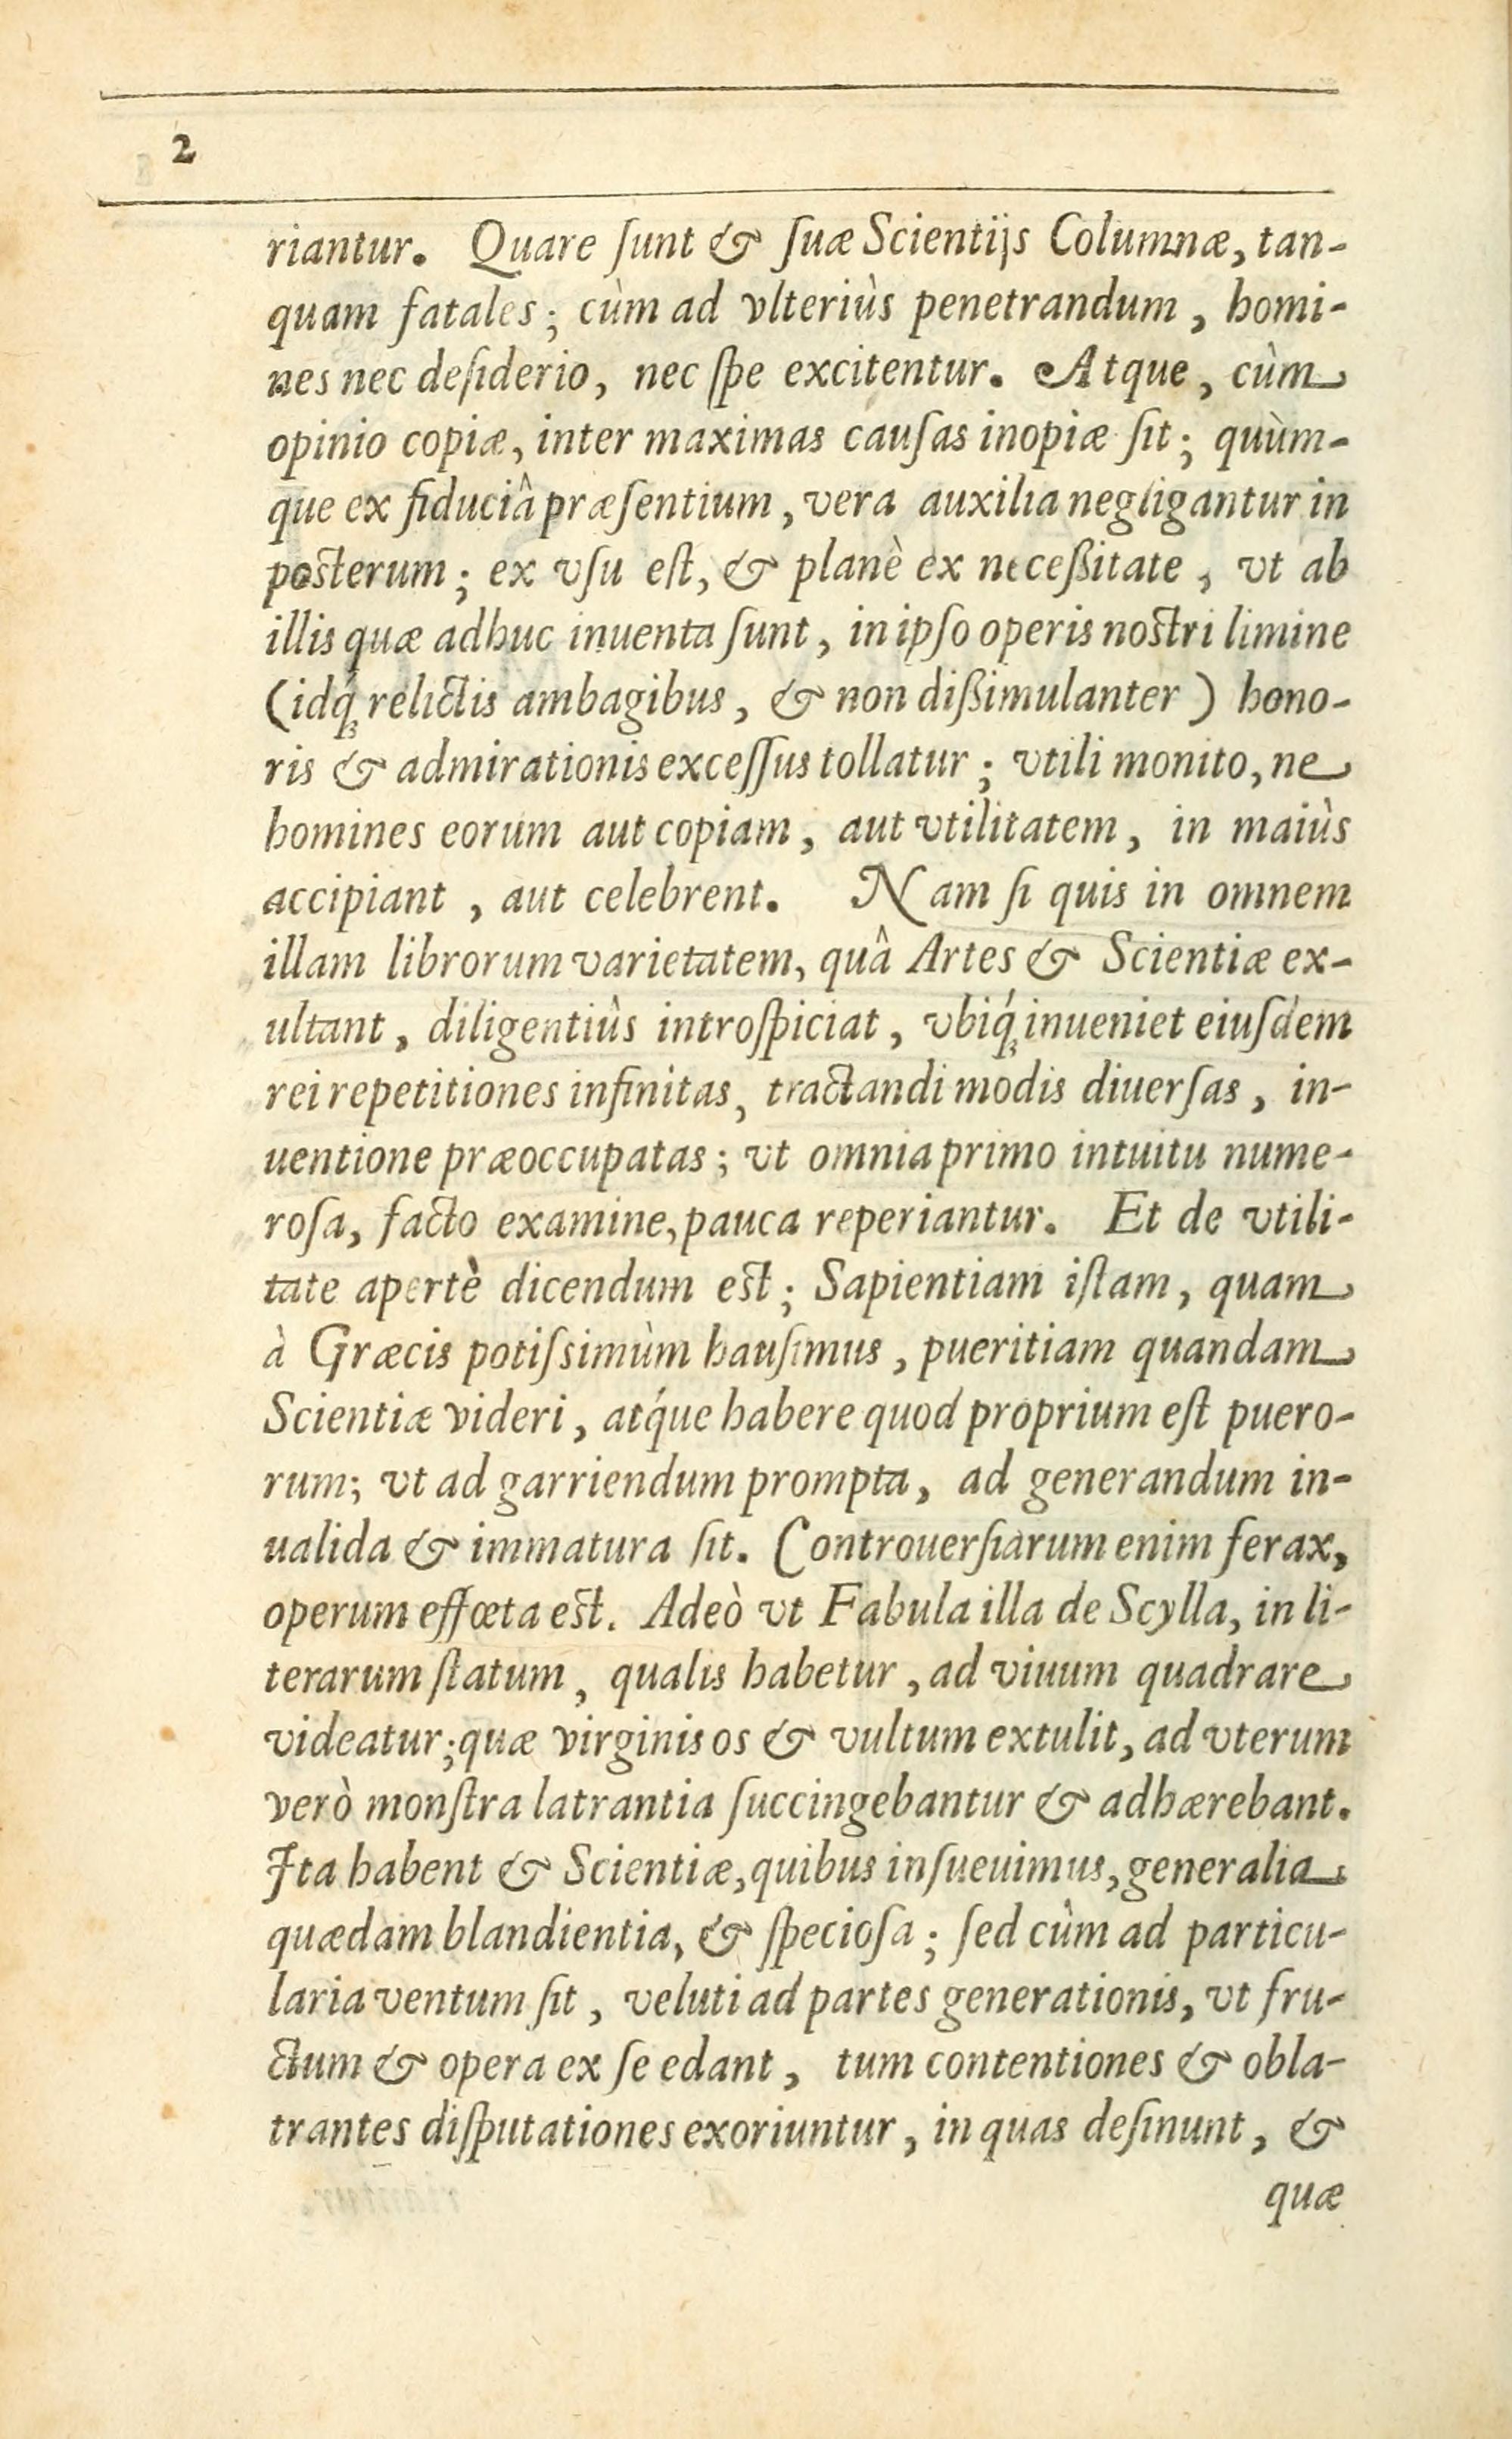 2
riantur. Quare ſunt & ſuæ Scientijs Columnæ, tan-
quam fatales; cùm ad vlteriùs penetrandum, homi-
nes nec deſiderio, nec ſpe excitentur. Atque, cùm
opinio copiæ, inter maximas cauſas inopiæ ſit; quùm-
que ex fiduciâ præſentium, vera auxilia negligantur in
poſterum; ex vſu eſt, & planè ex neceßitate, vt ab
illis quæ adhuc inuenta ſunt, in ipſo operis noſtri limine
(idq́ꝫ relictis ambagibus, & non dißimulanter) hono-
ris & admirationis exceſſus tollatur; vtili monito, ne
homines eorum aut copiam, aut vtilitatem, in maiùs
accipiant, aut celebrent. Nam ſi quis in omnem
illam librorum varietatem, quâ Artes & Scientiæ ex-
ultant, diligentiùs introſpiciat, vbiq́ꝫ inueniet eiuſdem
rei repetitiones infinitas, tractandi modis diuerſas, in-
uentione præoccupatas; vt omnia primo intuitu nume-
roſa, facto examine, pauca reperiantur. Et de vtili-
tate apertè dicendum eſt; Sapientiam iſtam, quam
à Græcis potiſsimùm hauſimus, pueritiam quandam
Scientiæ videri, atq́ue habere quod proprium eſt puero-
rum; vt ad garriendum prompta, ad generandum in-
ualida & immatura ſit. Controuerſiarum enim ferax,
operum effœta eſt. Adeò vt Fabula illa de Scylla, in li-
terarum ſtatum, qualis habetur, ad viuum quadrare
videatur; quæ virginis os & vultum extulit, ad vterum
verò monſtra latrantia ſuccingebantur & adhærebant.
Ita habent & Scientiæ, quibus inſueuimus, generalia
quædam blandientia, & ſpecioſa; ſed cùm ad particu-
laria ventum ſit, veluti ad partes generationis, vt fru-
ctum & opera ex ſe edant, tum contentiones & obla-
trantes diſputationes exoriuntur, in quas deſinunt, &
quæ